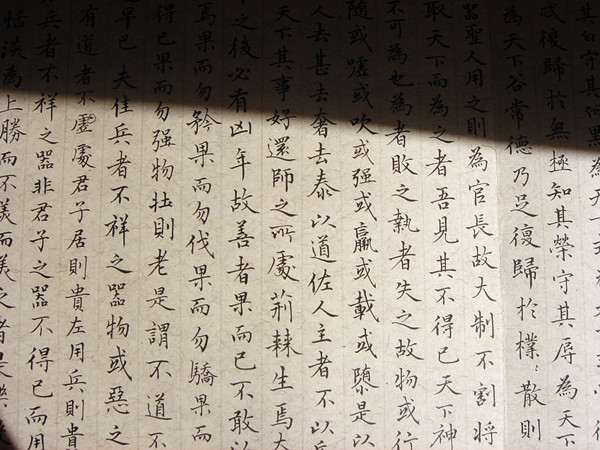 其白守其黑為天下式為天下式
忒復歸於無極知其榮守其辱為天下
為天下谷常德乃足復歸於樸〻散則
器聖人用之則為官長故大制不割將
取天下而為之者吾見其不得已天下神
不可為也為者敗之執者失之故物或行
隨或噓或吹或强或羸或載或隳是以
人去甚去奢去泰以道佐人主者不以兵
天下其事好還師之所處荊棘生焉大
之後必有凶年故善者果而已不敢以
焉果而勿矜果而勿伐果而勿驕果而
得已果而勿强物壯則老是謂不道不
早已 夫佳兵者不祥之器物或惡之
有道者不處君子居則貴左用兵則貴
兵者不祥之器非君子之器不得已而用
恬淡為上勝而不美而美之者是樂